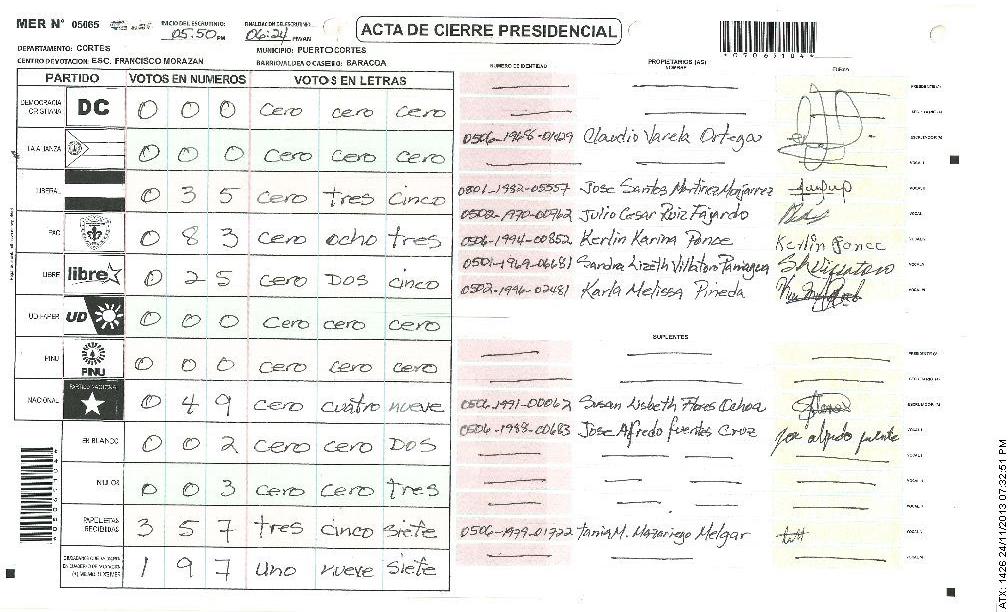 MER N° 05065
INICIO DEL ESCRUTINIO: 05:50 PM
FINALIZACION DEL ESCRUTINIO: 06:24 PM
ACTA DE CIERRE PRESIDENCIAL
DEPARTAMENTO: CORTES
MUNICIPIO: PUERTO CORTES
CENTRO DE VOTACION: ESC. FRANCISCO MORAZAN
BARRIO/ALDEA O CASERIO: BARACOA
PARTIDO VOTOS EN NUMEROS VOTOS EN LETRAS
DEMOCRACIA CRISTIANA DC 0 0 0 cero cero cero
LA ALIANZA 0 0 0 cero cero cero
LIBERAL 0 3 5 cero tres cinco
PAC 0 8 3 cero ocho tres
LIBRE libre 0 2 5 cero DOS cinco
UD FAPER UD 0 0 0 cero cero cero
PINU PINU 0 0 0 cero cero cero
NACIONAL PARTIDO NACIONAL 0 4 9 cero cuatro nueve
EN BLANCO 0 0 2 cero cero DOS
NULOS 0 0 3 cero cero tres
PAPELETAS RECIBIDAS 3 5 7 tres cinco siete
1 9 7 uno nueve siete
NUMERO DE IDENTIDAD
PROPIETARIOS (AS)
NOMBRE
FIRMA
0506-1968-01429 Claudio Varela Ortega
0801-1982-05557 Jose Santos Martinez Monjarrez
0502-1970-00762 Julio Cesar Ruiz Fajardo
0506-1994-00852 Kerlin Karina Ponce Kerlin Ponce
0501-1969-06681 Sandra Lizeth Villatoro Paniagua
0502-1996-02481 Karla Melissa Pineda
SUPLENTES
0506-1991-00062 Susan Lisbeth Flores Ochoa
0506-1988-00683 Jose Alfredo fuentes Cruz
0506-1979-01722 Tania M. Mazariego Melgar
ATX: 1426 24/11/2013 07:32:51 PM